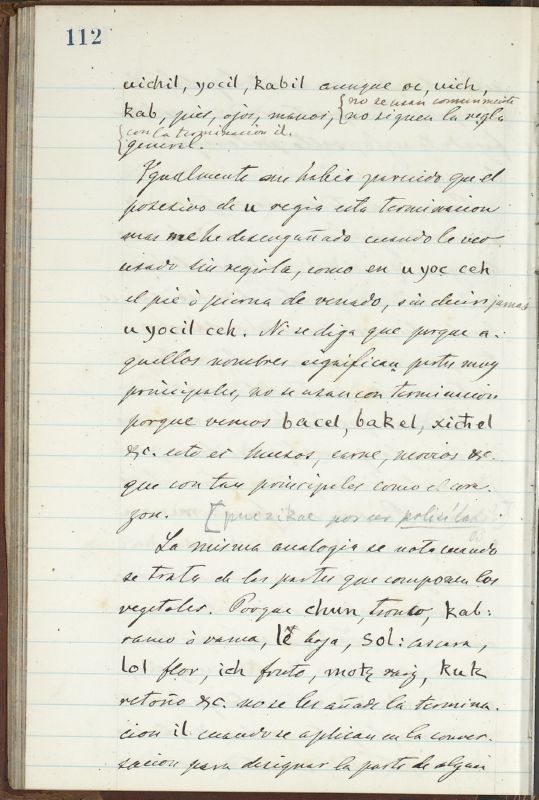 112
uichil, yocil, kabil aunque oc, uich,
{no se usan comunmente
kab, pies, ojos, manos, {no siguen la regla
{con la terminacion il.
general.
Ygualmente me habia parecido que el
posesivo de u regia esta terminacion
mas me he desengañado cuando le veo
usado sin regirla, como en u yoc ceh
el pié ò pierna de venado, sin decir jamas
u yocil ceh. Ni se diga que porque a-
quellos nombres significan partes muy
principales, no se usan con terminacion
porque vemos bacel, bakel, xichel
&c. esto es huesos, carne, nervios &c.
que son tan principales como el cora-
zon. [puczikal por ser polisílabo
La misma analogia se nota cuando
se trata de las partes que componen los
vegetales. Porque chun, tronco, kab:
ramo ò rama, lè hoja, sol: cascara,
lol flor, ich fruto, motz raiz, kuk
retoño &c. no se les añade la termina-
cion il cuando se aplican en la conver-
sacion para designar la parte de algun